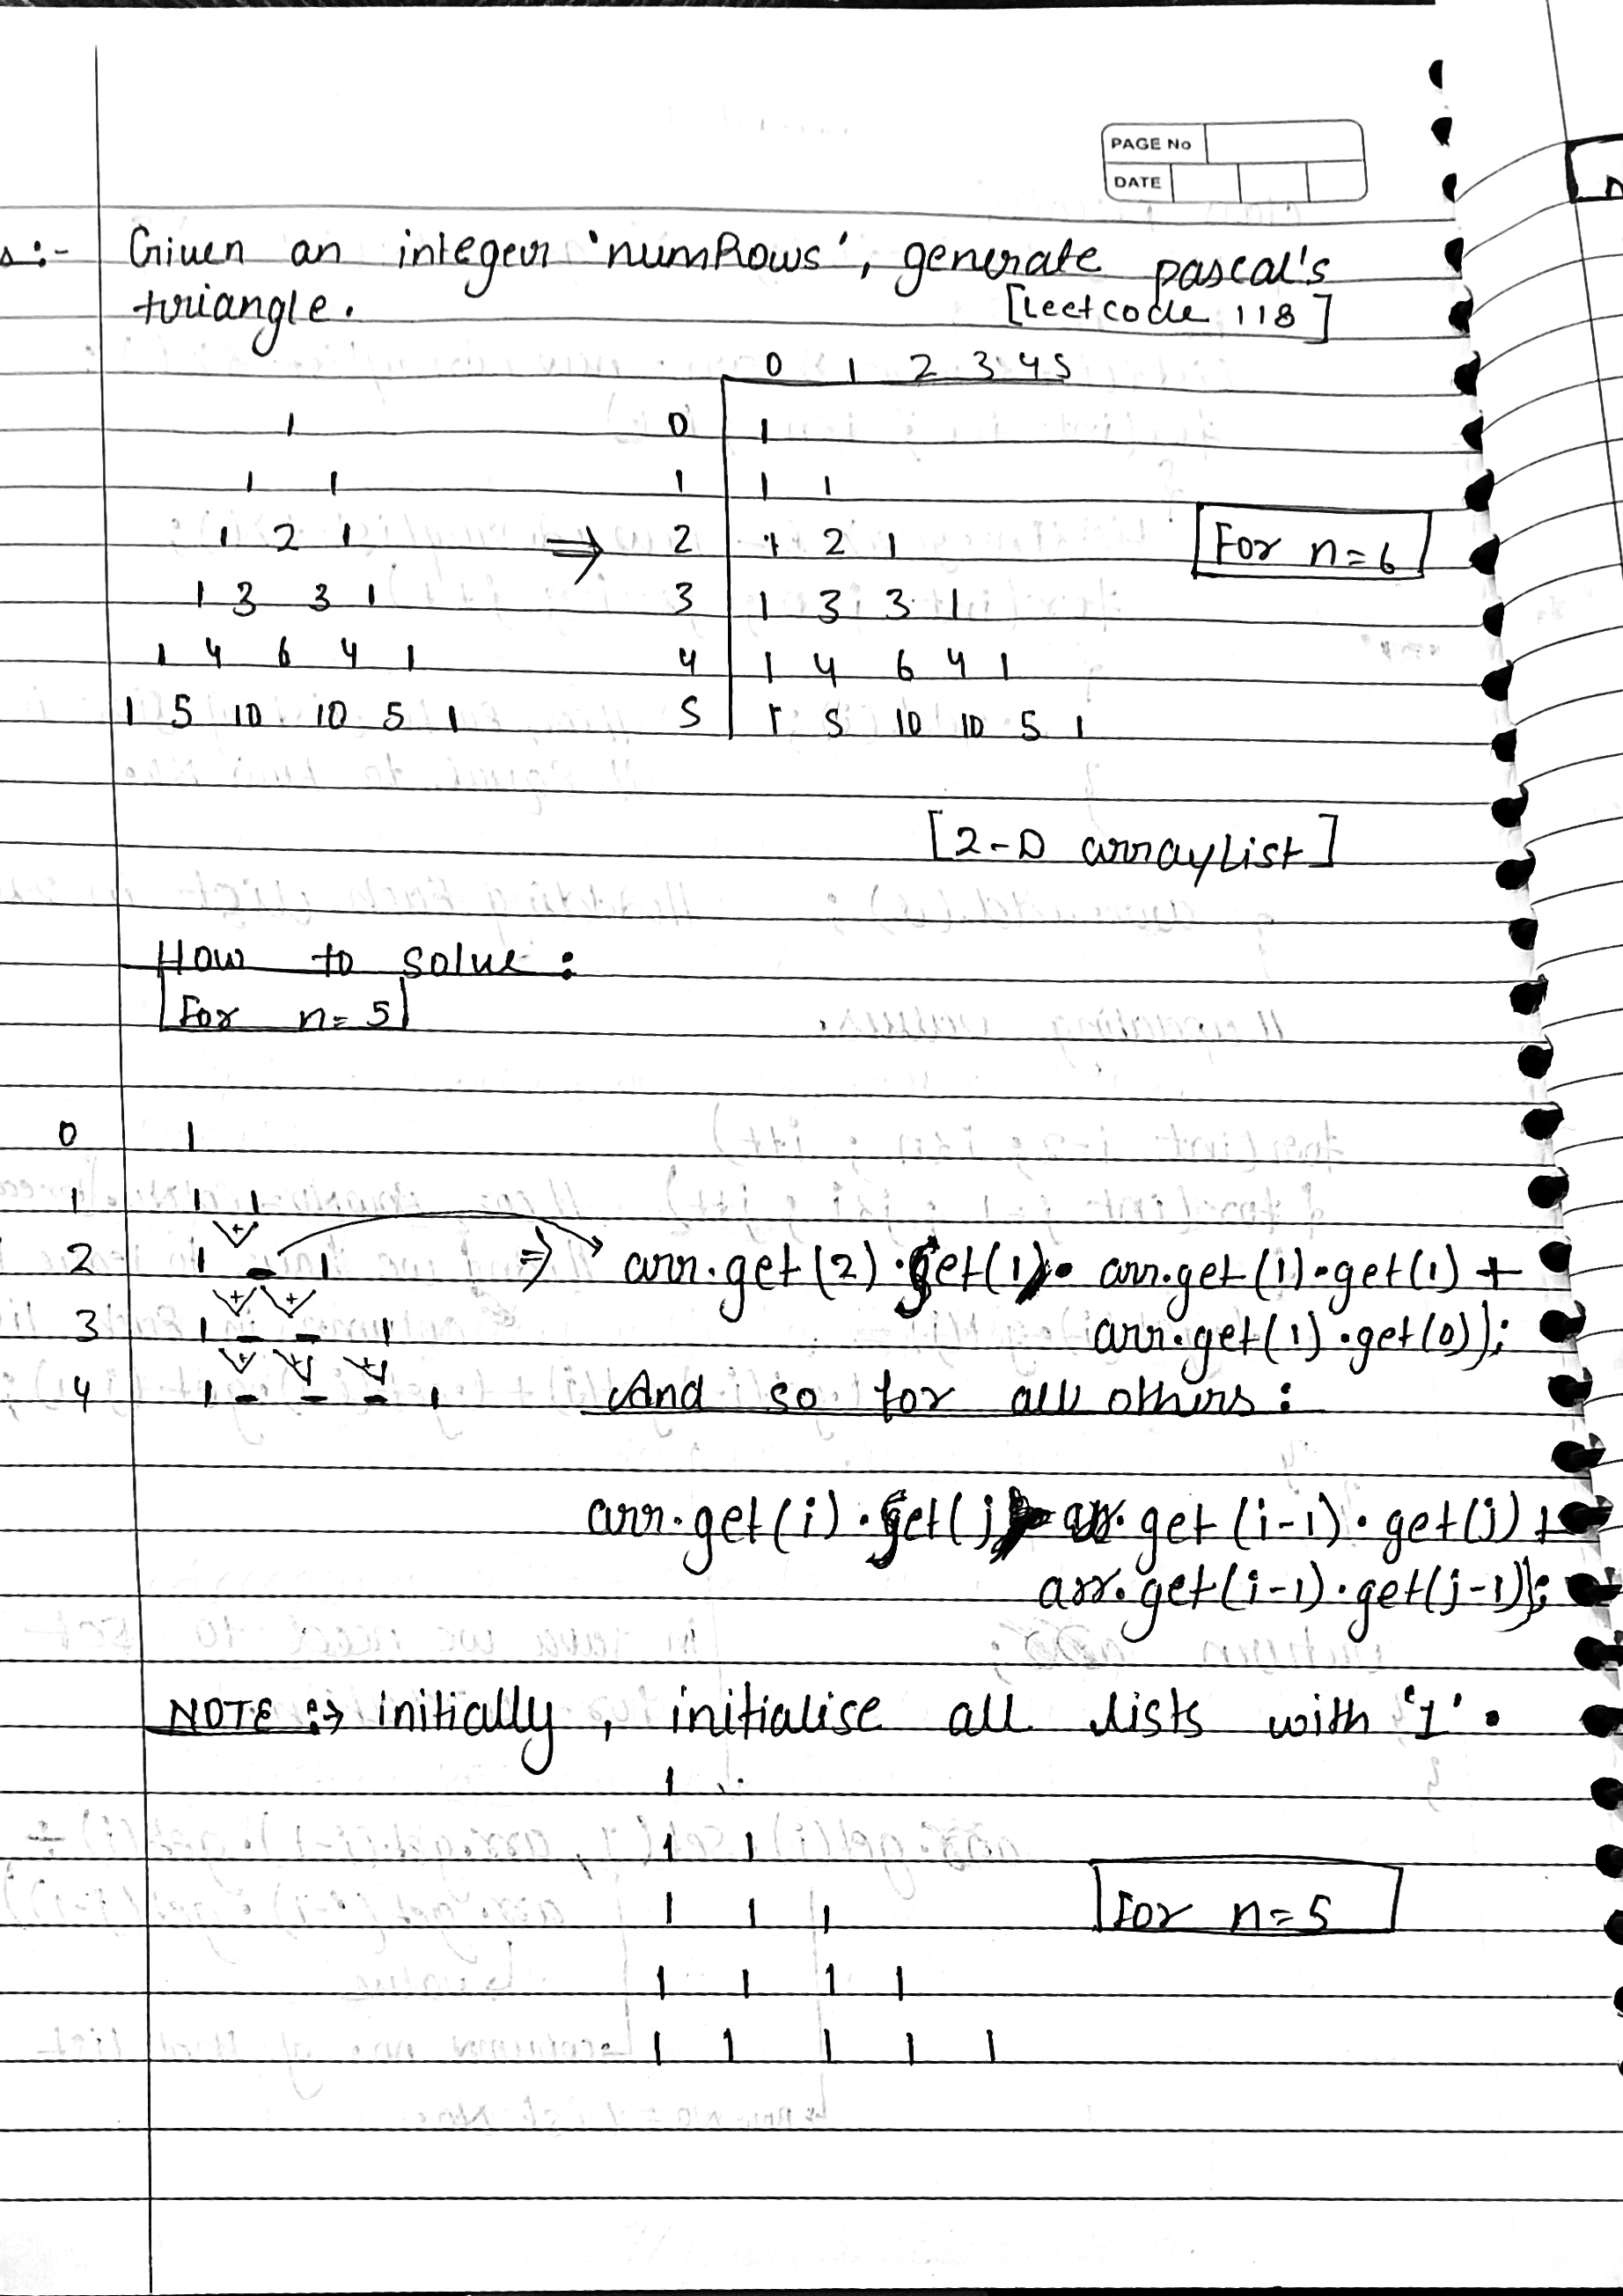 PAGE No
DATE
s:- Given an integer 'numRows', generate pascal's
triangle. [Leetcode 118]
0 1 2 3 4 5
1 0 1
1 1 1 1 1
1 2 1 ⇒ 2 1 2 1 For n=6
1 3 3 1 3 1 3 3 1
1 4 6 4 1 4 1 4 6 4 1
1 5 10 10 5 1 5 1 5 10 10 5 1
[2-D arrayList]
How to solve :
For n=5
0 1
1 1 1
+
2 1 - 1 ⇒ arr.get(2).get(1) arr.get(1).get(1) +
+ +
3 1 - - 1 arr.get(1).get(0));
+ + +
4 1 - - - 1 And so for all others :
arr.get(i).get(j arr.get(i-1).get(j) +
arr.get(i-1).get(j-1));
NOTE :→ initially, initialise all lists with '1'.
1
1 1
1 1 1 For n=5
1 1 1 1
1 1 1 1 1